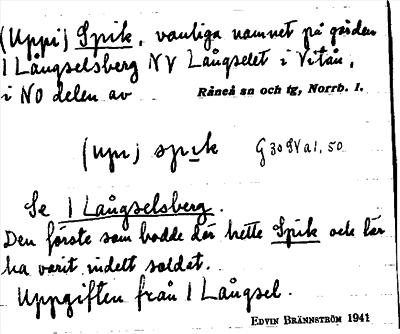 (Uppi) Spik, vanliga namnet på gården
1 Långselsberg NV Långselet i Vitån,
i NO delen av Råneå sn och tg, Norrb. l.
(upi) spik G 30 SV a1, 50
Se 1 Långselsberg.
Den förste som bodde där hette Spik och lär
ha varit indelt soldat.
Uppgiften från 1 Långsel.
EDVIN BRÄNNSTRÖM 1941